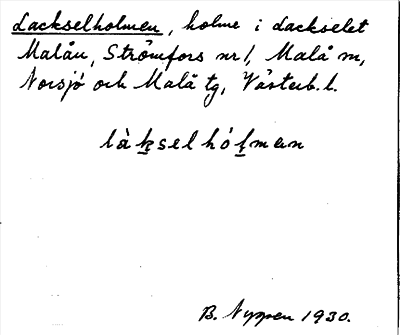 Lackselholmen, holme i Lackselet
Malån, Strömfors nr 1, Malå m,
Norsjö och Malå tg, Västerb. l.
làkselhólmen
B. Nyppen 1930.